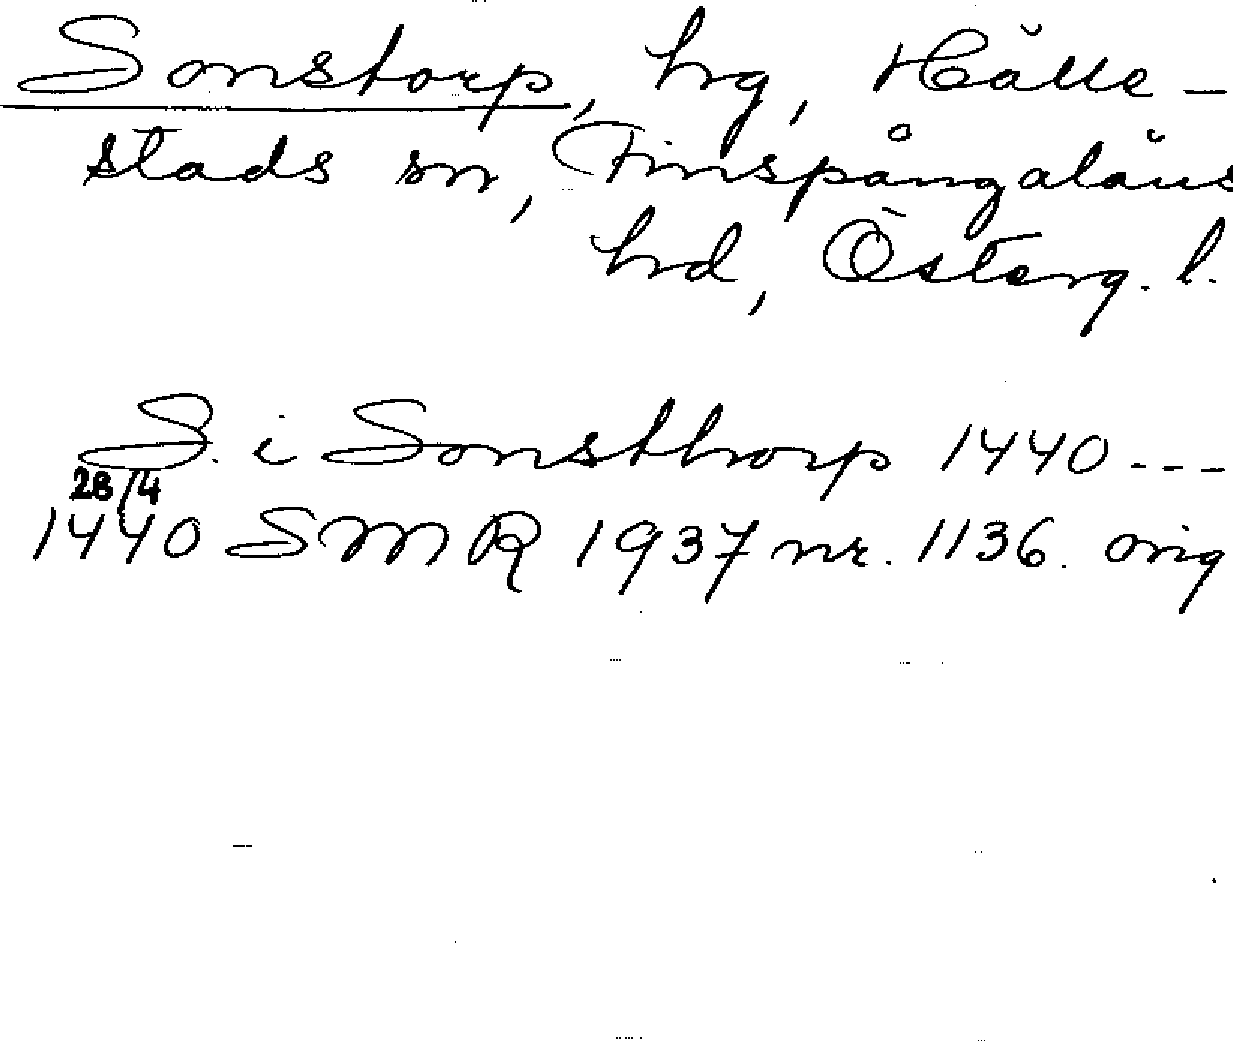 Sonstorp, hrg, Hälle-
stads sn, Finspångaläns
hrd, Österg. l.
S. i Sonsthorp 1440---
28/4
1440 SMR 1937 nr. 1136. orig